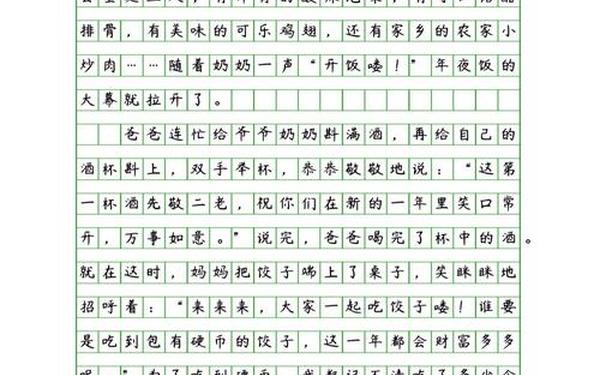 排骨，有美味的可乐鸡翅，还有家乡的农家小
炒肉……随着奶奶一声“开饭喽！”年夜饭的
大幕就拉开了。
爸爸连忙给爷爷奶奶斟满酒，再给自己的
酒杯斟上，双手举杯，恭恭敬敬地说：“这第
一杯酒先敬二老，祝你们在新的一年里笑口常
开，万事如意。”说完，爸爸喝完了杯中的酒。
就在这时，妈妈把饺子端上了桌子，笑眯眯地
招呼着：“来来来，大家一起吃饺子喽！谁要
是吃到包有硬币的饺子，这一年都会财富多多